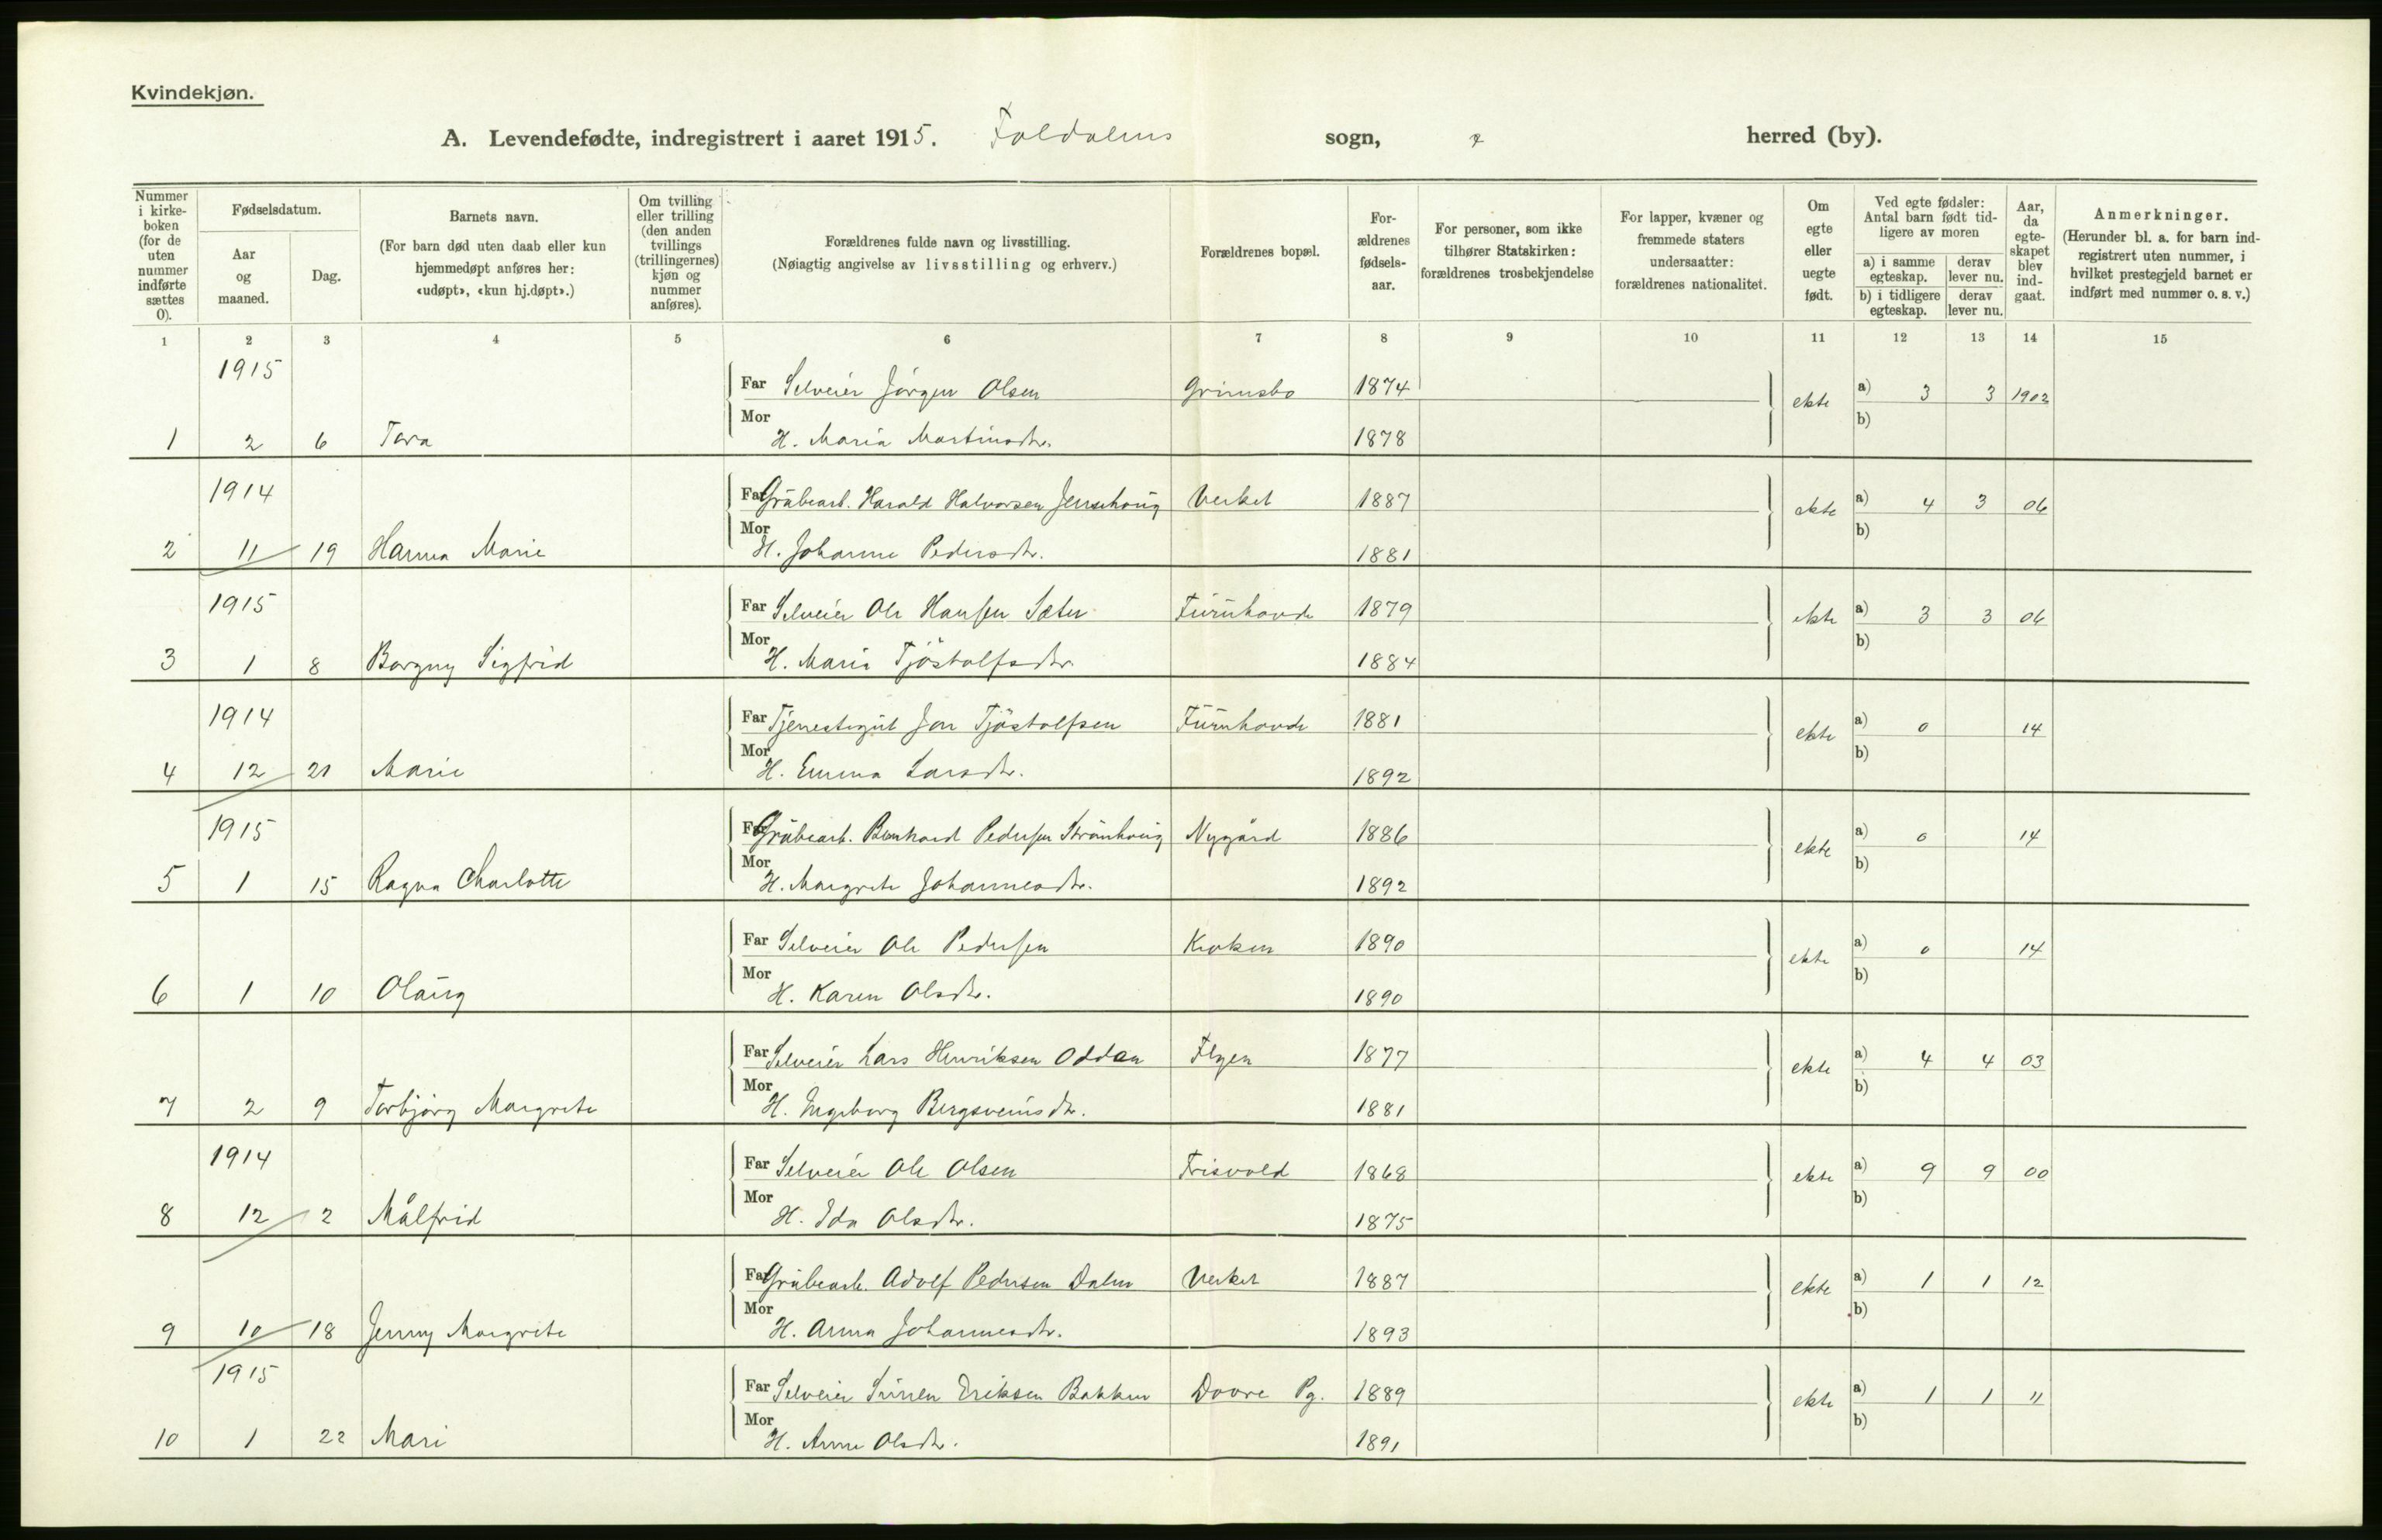 Kvindekjøn.
A. Levendefødte, indregistrert i aaret 1915. Foldalens sogn, herred (by).
Nummer i kirkeboken (for de uten nummer indførte sættes 0).
Fødselsdatum.
Aar og maaned.
Dag.
Barnets navn.
(For barn død uten daab eller kun hjemmedøpt anføres her: «udøpt», «kun hj.døpt».)
Om tvilling eller trilling (den anden tvillings (trillingernes) kjøn og nummer anføres).
Forældrenes fulde navn og livsstilling.
(Nøiagtig angivelse av livsstilling og erhverv.)
Forældrenes bopæl.
Forældrenes fødselsaar.
For personer, som ikke tilhører Statskirken: forældrenes trosbekjendelse
For lapper, kvæner og fremmede staters undersaatter: forældrenes nationalitet.
Om egte eller uegte født.
Ved egte fødsler: Antal barn født tidligere av moren
a) i samme egteskap. derav lever nu.
b) i tidligere egteskap. derav lever nu.
Aar, da egteskapet blev indgaat.
Anmerkninger.
(Herunder bl. a. for barn indregistrert uten nummer, i hvilket prestegjeld barnet er indført med nummer o. s. v.)
1 2 3 4 5 6 7 8 9 10 11 12 13 14 15
1915
Far Selveier Jörgen Olsen Grimsbo 1874 ekte a) 3 3 1902
Mor b)
1 2 6 Tora H. Maria Martinsdtr. 1878
1914
Far Grübearb. Harald Halvorsen Verket 1887 ekte a) 4 3 06
Mor b)
2 11 19 Hanna Marie H. Johanne Pedersdtr. 1881
1915
Far Selveier Ole Hansen Sæter Furuhovde 1879 ekte a) 3 3 06
Mor b)
3 1 8 Borgny Sigfrid H. Maria Tjöstolfsdtr. 1884
1914
Far Tjenestegut Jon Tjöstolfsen Furuhovde 1881 ekte a) 0 14
Mor b)
4 12 21 Marie H. Emma Larsdtr. 1892
1915
Far Grübearb. Bernhard Pedersen Nygård 1886 ekte a) 0 14
Mor b)
5 1 15 Ragna Charlotte H. Margrete Johannesdtr. 1892
Far Selveier Ole Pedersen Kroken 1890 ekte a) 0 14
Mor b)
6 1 10 Olaug H. Karen Olsdtr. 1890
Far Selveier Lars Henriksen Oddan Elgen 1877 ekte a) 4 4 03
Mor b)
7 2 9 Torbjörg Margrete H. Ingeborg Bergsveinsdtr. 1881
1914
Far Selveier Ole Olsen Frisvold 1868 ekte a) 9 9 00
Mor b)
8 12 2 Målfrid H. Ida Olsdtr. 1875
Far Grübearb. Adolf Pedersen Dalen Verket 1887 ekte a) 1 1 12
Mor b)
9 10 18 Jenny Margrete H. Anna Johannesdtr. 1893
1915
Far Selveier Eriksen Bakken Dovre Pg. 1889 ekte a) 1 1 "
Mor b)
10 1 22 Mari H. Anne Olsdtr. 1891